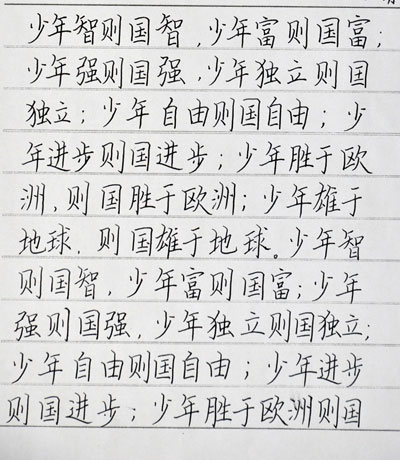 少年智则国智,少年富则国富;
少年强则国强,少年独立则国
独立;少年自由则国自由;少
年进步则国进步;少年胜于欧
洲,则国胜于欧洲;少年雄于
地球,则国雄于地球。少年智
则国智,少年富则国富;少年
强则国强,少年独立则国独立;
少年自由则国自由;少年进步
则国进步;少年胜于欧洲则国